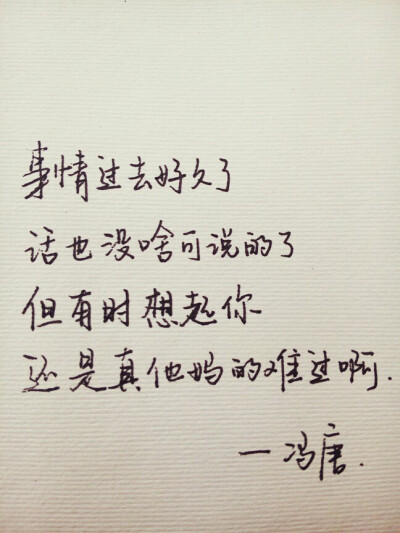 事情过去好久了
话也没啥可说的了
但有时想起你
还是真他妈的难过啊.
一冯唐.